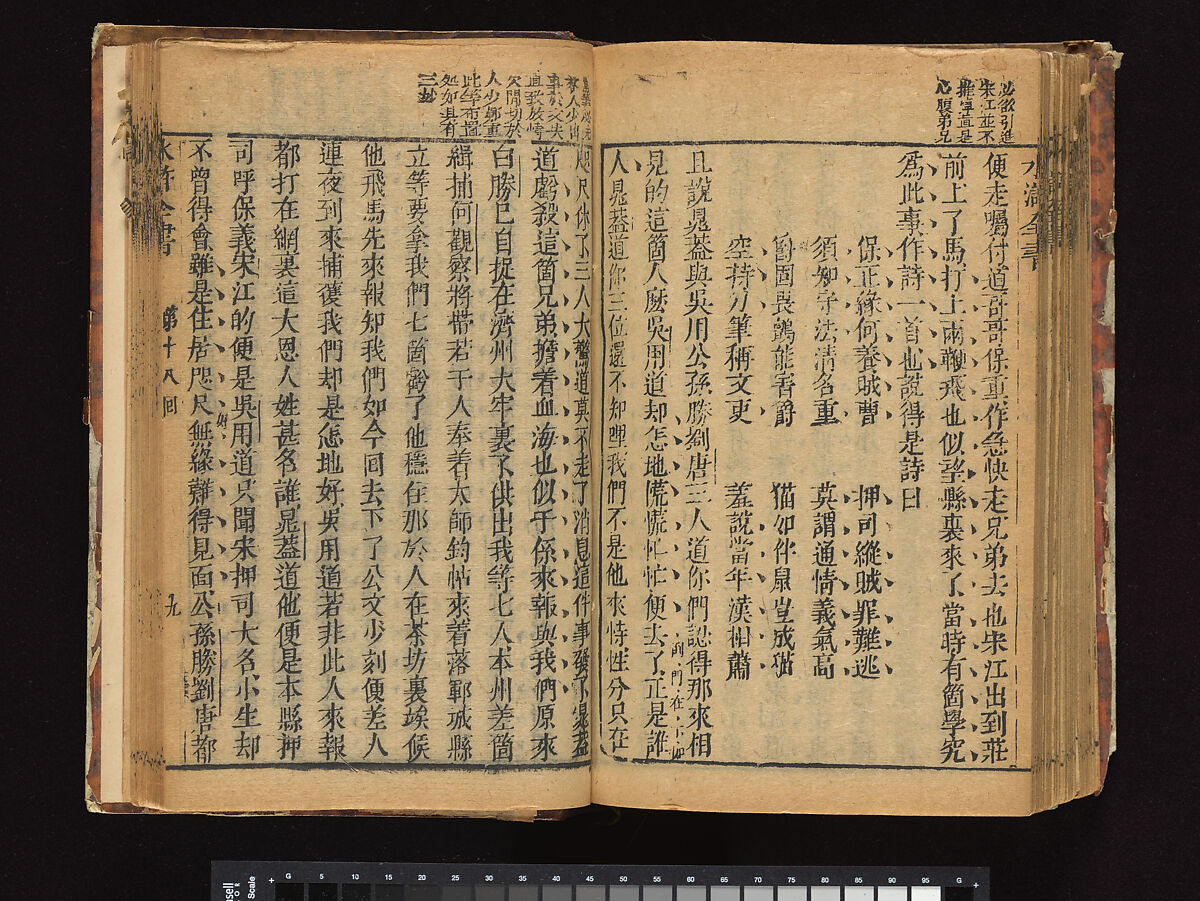 必欲引進
宋江並不
推穿直是
心腹弟兄
水滸全書
便走囑付道哥哥保重作急快走兄弟去也宋江出到莊
前上了馬打上兩鞭飛也似望縣裏來了當時有箇學究
爲此事作詩一首也說得是詩曰
保正緣何養賊曹 押司縱賊罪難逃
須知守法清名重 莫謂通情義氣高
爵固畏鸇能害爵 猫如伴鼠豈成猫
空持刀筆稱文吏 羞說當年漢相蕭
且說晁蓋與吳用公孫勝劉唐三人道你們認得那來相
見的這箇人麽吳用道却怎地慌慌忙忙便去了正是誰
人晁蓋道你三位還不知哩我們不是他來時性分只在
此等布置
咫尺休了三人大驚道莫不走了消息這件事發了晁蓋
道虧殺這箇兄弟擔着血海也似干係來報與我們原來
白勝已自捉在濟州大牢裏了供出我等七人本州差箇
緝捕何觀察將帶若干人奉着太師鈞帖來着落鄆城縣
立等要拿我們七箇虧了他穩住那於人在茶坊裏竢候
他飛馬先來報知我們如今回去下了公文少刻便差人
連夜到來捕獲我們却是怎地好吳用道若非此人來報
都打在網裏這大恩人姓甚名誰晁蓋道他便是本縣押
司呼保義宋江的便是吳用道只聞宋押司大名小生却
不曾得會雖是住居咫尺無緣難得見面公孫勝劉唐都
水滸全書 第十八回 九